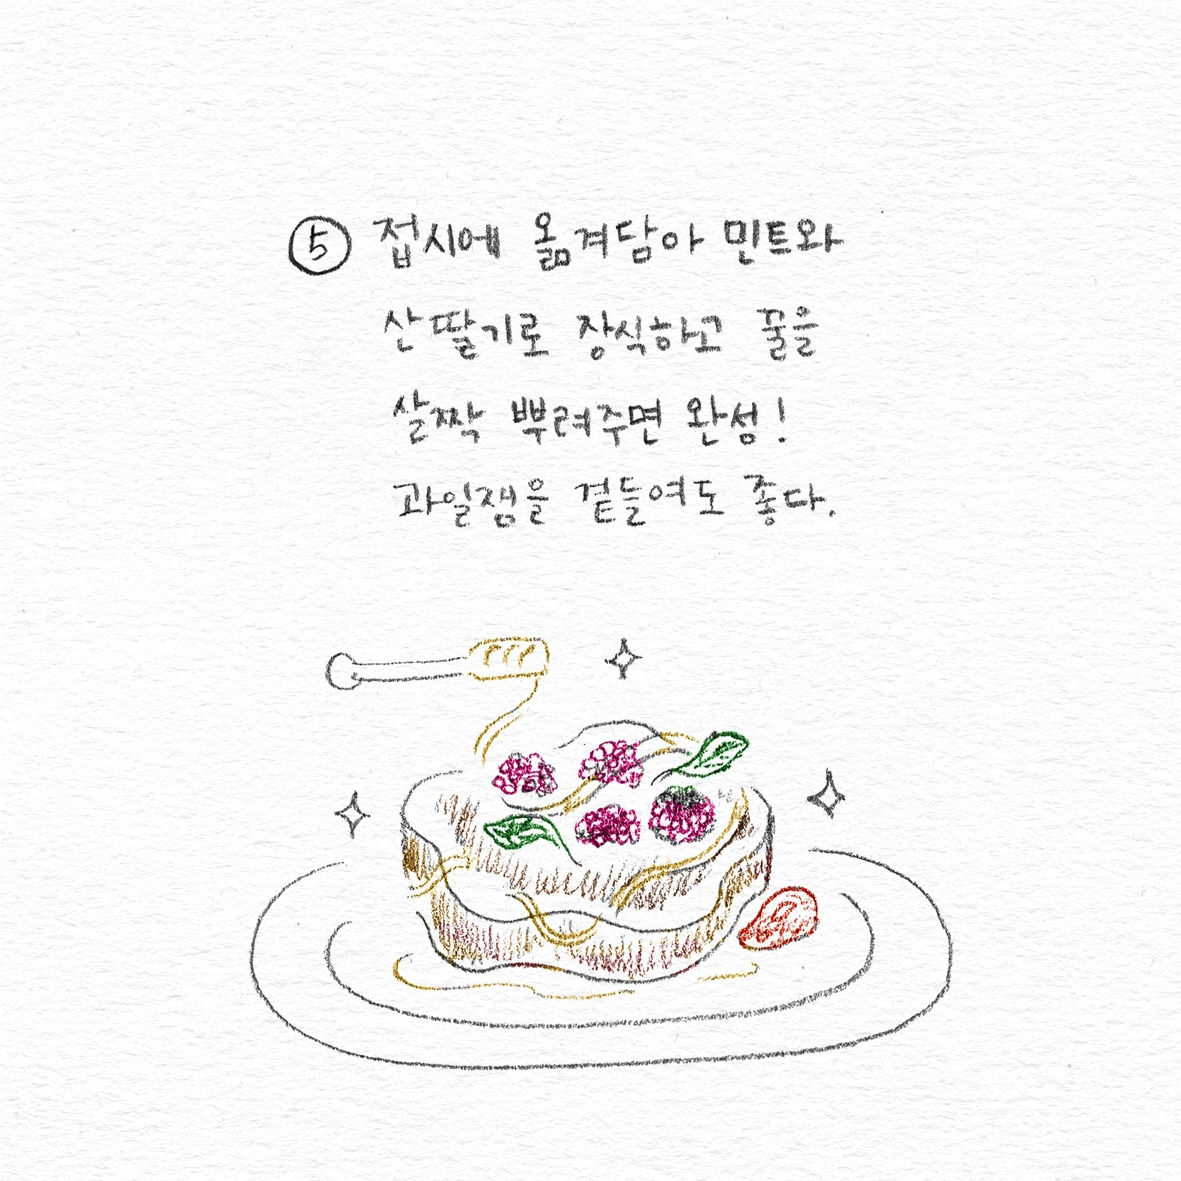 ⑤ 접시에 옮겨담아 민트와
산딸기로 장식하고 꿀을
살짝 뿌려주면 완성!
과일잼을 곁들여도 좋다.